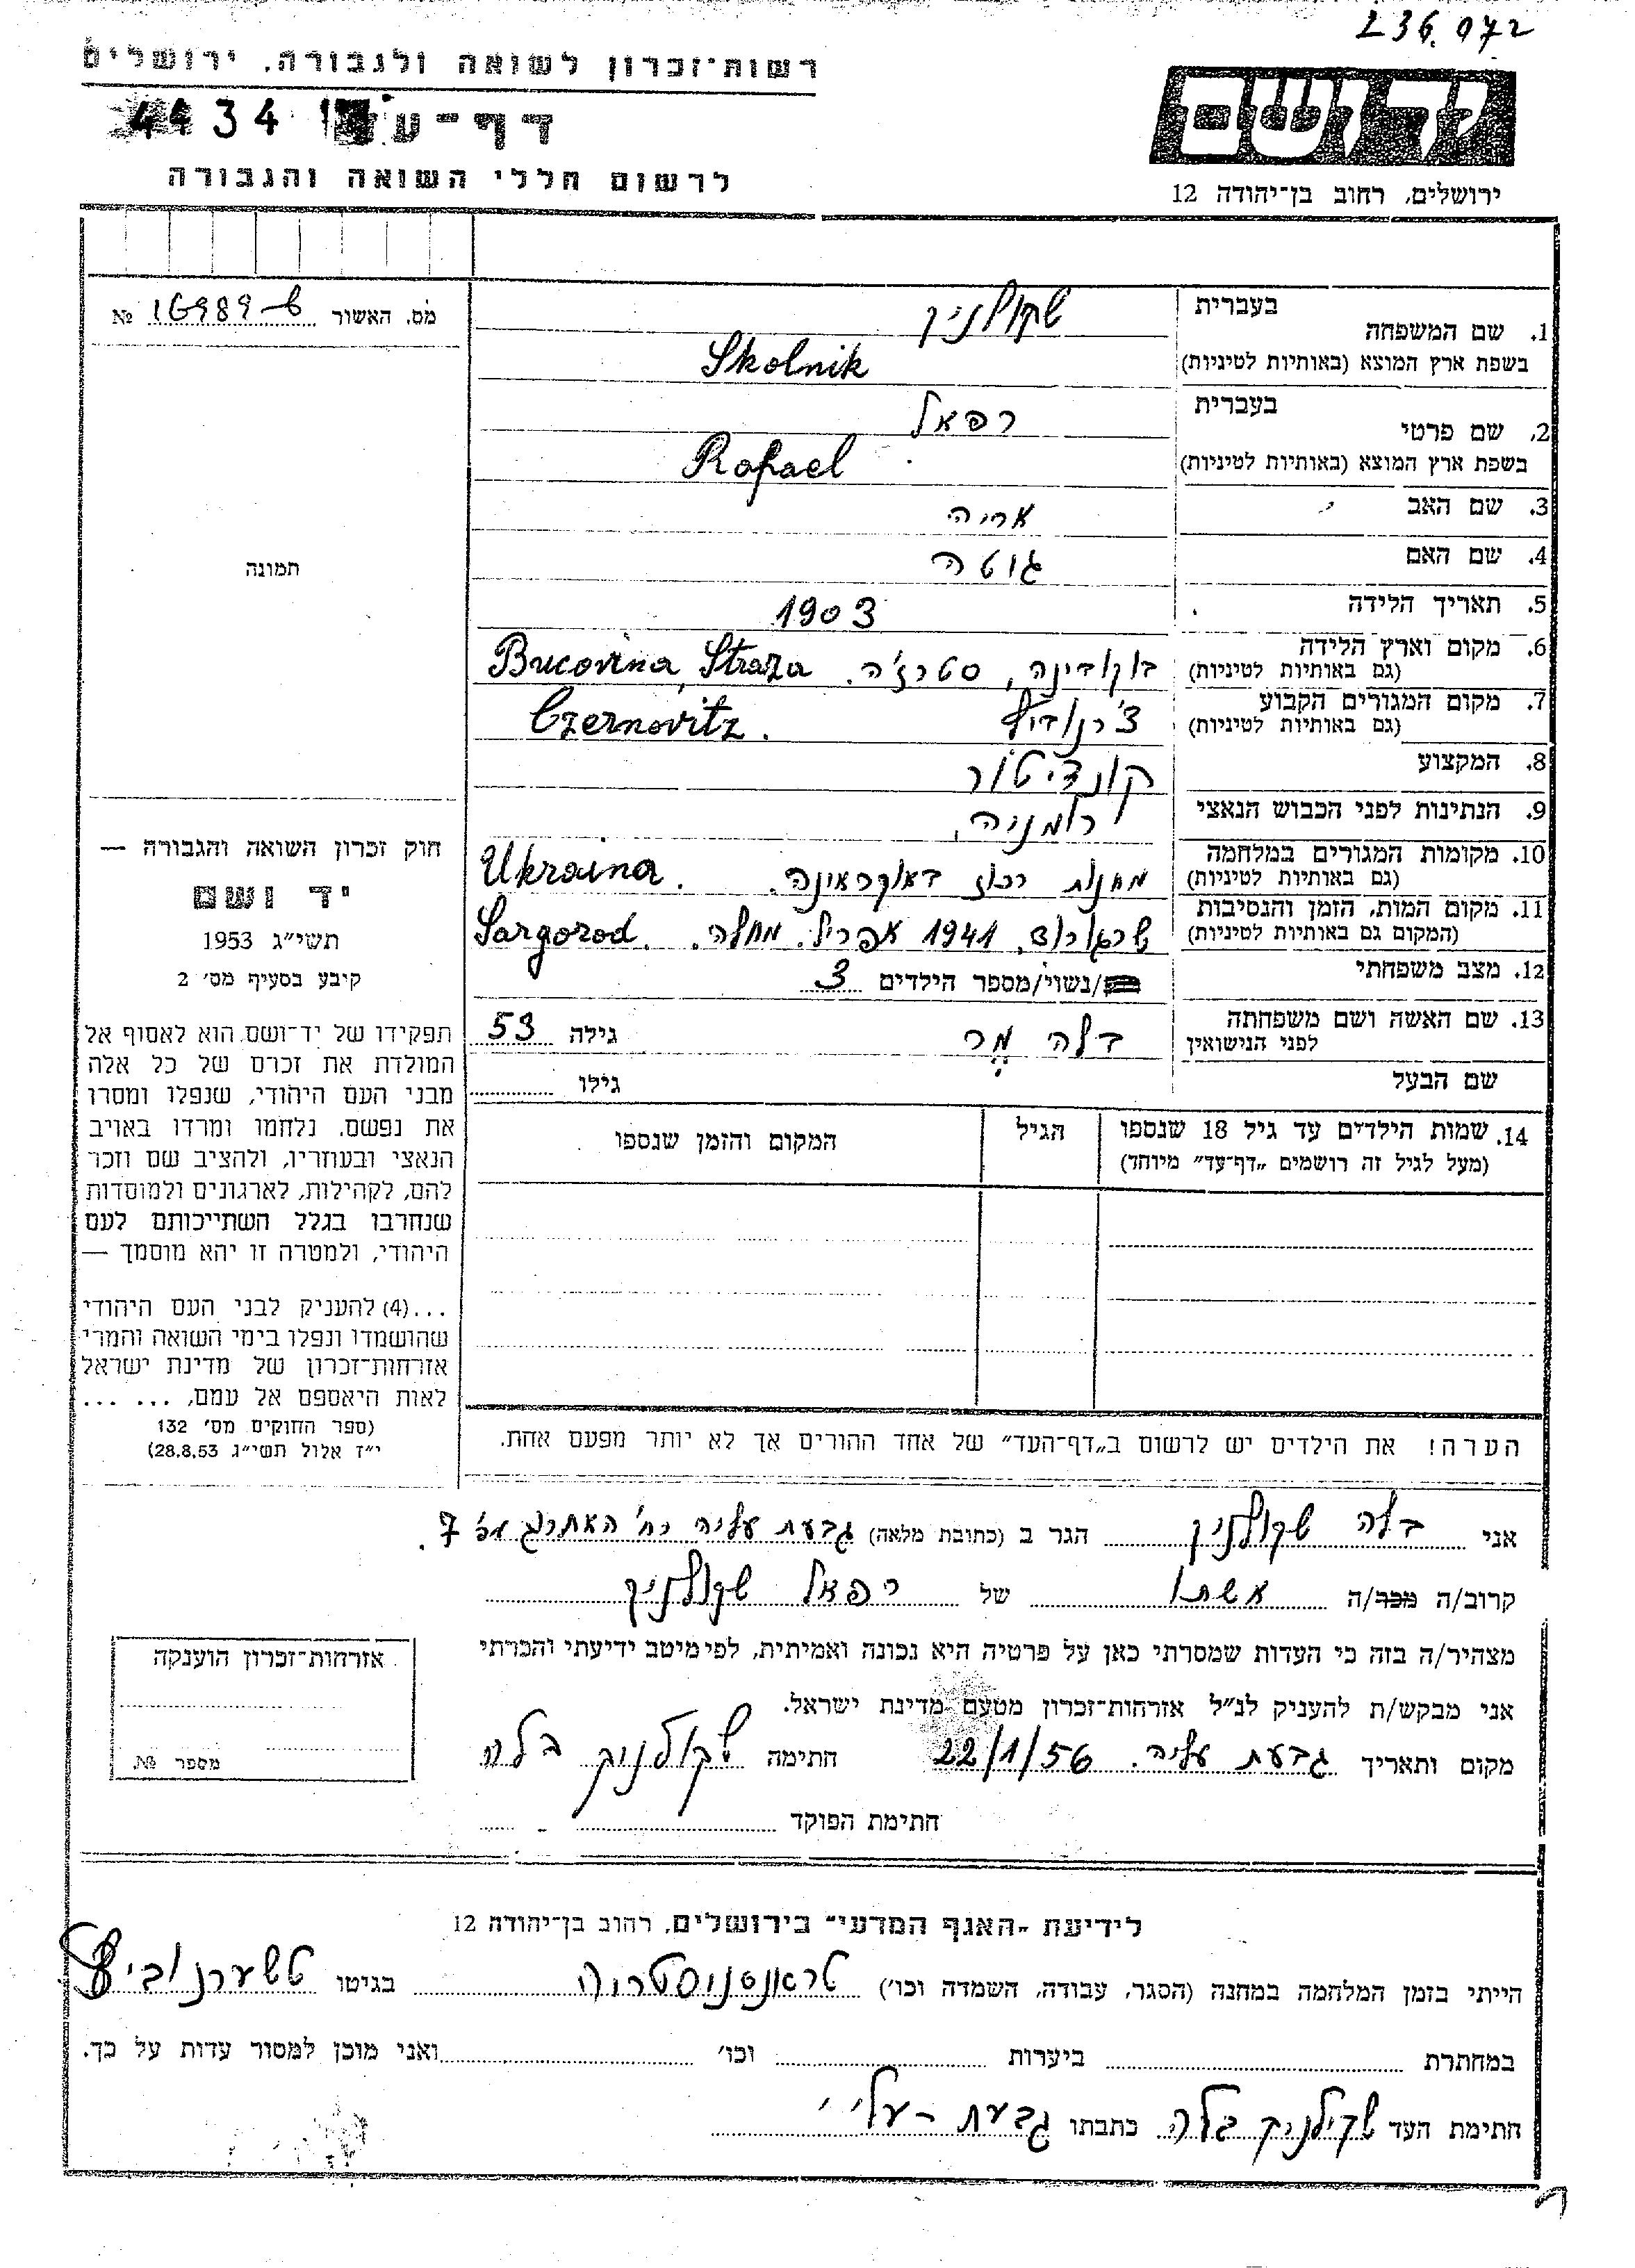 236.072
רשות־זכרון לשואה ולגבורה, ירושלים
4434
דף־עד
לרשום חללי השואה והגבורה
יד ושם
ירושלים, רחוב בן־יהודה 12
מס. האשור 16989 №
תמונה
חוק זכרון השואה והגבורה —
יד ושם
תשי״ג 1953
קיבע בסעיף מס׳ 2
תפקידו של יד־ושם הוא לאסוף אל
המולדת את זכרם של כל אלה
מבני העם היהודי, שנפלו ומסרו
את נפשם, נלחמו ומרדו באויב
הנאצי ובעוזריו, ולהציב שם וזכר
להם, לקהילות, לארגונים ולמוסדות
שנחרבו בגלל השתייכותם לעם
היהודי, ולמטרה זו יהא מוסמך —
...(4) להעניק לבני העם היהודי
שהושמדו ונפלו בימי השואה והמרי
אזרחות־זכרון של מדינת ישראל
לאות היאספם אל עמם, ... ...
(ספר החוקים מס׳ 132
י״ז אלול תשי״ג 28.8.53)
1. שם המשפחה בעברית שקולניק
בשפת ארץ המוצא (באותיות לטיניות) Skolnik
2. שם פרטי בעברית רפאל
בשפת ארץ המוצא (באותיות לטיניות) Rafael
3. שם האב אריה
4. שם האם גוטה
5. תאריך הלידה 1903
6. מקום וארץ הלידה
(גם באותיות לטיניות) בוקובינה, סטרז׳ה. Bucovina, Straza
7. מקום המגורים הקבוע
(גם באותיות לטיניות) צ׳רנוביץ Czernovitz.
8. המקצוע קונדיטור
9. הנתינות לפני הכבוש הנאצי רומניה.
10. מקומות המגורים במלחמה
(גם באותיות לטיניות) מחנות רכוז באוקראינה. Ukraina.
11. מקום המות, הזמן והנסיבות
(המקום גם באותיות לטיניות) שרגורוד, 1941 אפריל. מחלה. Sargorod.
12. מצב משפחתי /נשוי/מספר הילדים 3
13. שם האשה ושם משפחתה
לפני הנישואין בלה מר גילה 53
שם הבעל גילו
14. שמות הילדים עד גיל 18 שנספו הגיל המקום והזמן שנספו
(מעל לגיל זה רושמים „דף־עד״ מיוחד)
הערה! את הילדים יש לרשום ב„דף־העד״ של אחד ההורים אך לא יותר מפעם אחת.
אני בלה שקולניק הגר ב (כתובת מלאה) גבעת עליה רח׳ האתרוג מס׳ 7.
קרוב/ה מכר/ה אשתו של רפאל שקולניק
מצהיר/ה בזה כי העדות שמסרתי כאן על פרטיה היא נכונה ואמיתית, לפי מיטב ידיעתי והכרתי
אני מבקש/ת להעניק לנ״ל אזרחות־זכרון מטעם מדינת ישראל.
מקום ותאריך גבעת עליה. 22/1/56 חתימה שקולניק בלה
חתימת הפוקד
אזרחות־זכרון הוענקה
מספר №
לידיעת „האגף המדעי״ בירושלים, רחוב בן־יהודה 12
הייתי בזמן המלחמה במחנה (הסגר, עבודה, השמדה וכו׳) טראנסניסטריה בגיטו טשערנוביץ
במחתרת ביערות וכו׳ ואני מוכן למסור עדות על כך.
חתימת העד שקולניק בלה כתבתו גבעת-עלי׳